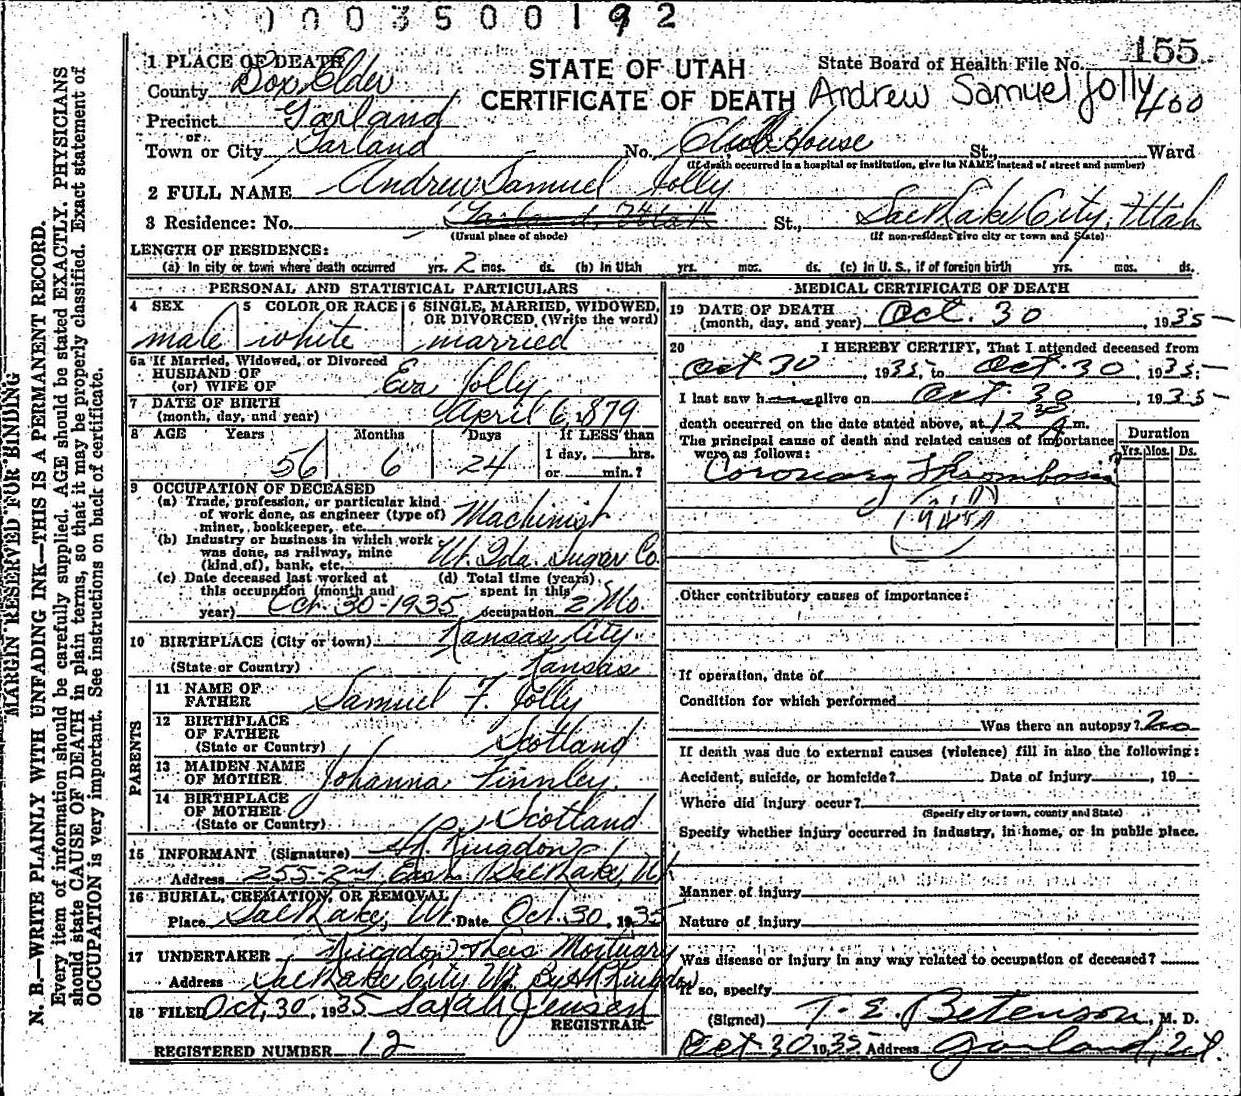 0003500192
MARGIN RESERVED FOR BINDING
N. B.—WRITE PLAINLY WITH UNFADING INK—THIS IS A PERMANENT RECORD.
Every item of information should be carefully supplied. AGE should be stated EXACTLY. PHYSICIANS
should state CAUSE OF DEATH in plain terms, so that it may be properly classified. Exact statement of
OCCUPATION is very important. See instructions on back of certificate.
STATE OF UTAH
CERTIFICATE OF DEATH
State Board of Health File No. 155
Andrew Samuel Jolly 400
1 PLACE OF DEATH
County Box Elder
Precinct Garland
or
Town or City Garland No. Club House St., Ward
(If death occurred in a hospital or institution, give its NAME instead of street and number)
2 FULL NAME Andrew Samuel Jolly
3 Residence: No. Garland, Utah St., Salt Lake City, Utah
(Usual place of abode) (If non-resident give city or town and State)
LENGTH OF RESIDENCE:
(a) In city or town where death occurred yrs. 2 mos. ds. (b) In Utah yrs. mos. ds. (c) In U. S., if of foreign birth yrs. mos. ds.
PERSONAL AND STATISTICAL PARTICULARS
4 SEX
male
5 COLOR OR RACE
white
6 SINGLE, MARRIED, WIDOWED,
OR DIVORCED, (Write the word)
married
6a If Married, Widowed, or Divorced
HUSBAND OF
(or) WIFE OF Eva Jolly
7 DATE OF BIRTH
(month, day, and year) April 6, 1879
8 AGE Years Months Days If LESS than
56 6 24 1 day, hrs.
or min.?
9 OCCUPATION OF DECEASED
(a) Trade, profession, or particular kind
of work done, as engineer (type of)
miner, bookkeeper, etc. Machinist
(b) Industry or business in which work
was done, as railway, mine
(kind of), bank, etc. Ut. Ida. Sugar Co.
(c) Date deceased last worked at
this occupation (month and
year) Oct. 30-1935
(d) Total time (years)
spent in this
occupation 2 Mo.
10 BIRTHPLACE (City or town) Kansas City
(State or Country) Kansas
PARENTS
11 NAME OF
FATHER Samuel F. Jolly
12 BIRTHPLACE
OF FATHER
(State or Country) Scotland
13 MAIDEN NAME
OF MOTHER Johanna Finnley
14 BIRTHPLACE
OF MOTHER
(State or Country) Scotland
15 INFORMANT (Signature)
Address 255-2nd East. Salt Lake, Ut.
16 BURIAL, CREMATION, OR REMOVAL
Place Salt Lake, Ut. Date Oct. 30, 1935
17 UNDERTAKER Mortuary
Address Salt Lake City Ut. By
18 FILED Oct, 30, 1935 Sarah Jensen
REGISTRAR
REGISTERED NUMBER 12
MEDICAL CERTIFICATE OF DEATH
19 DATE OF DEATH
(month, day, and year) Oct. 30, 1935
20 I HEREBY CERTIFY, That I attended deceased from
Oct 30, 1935, to Oct. 30, 1935;
I last saw h alive on Oct. 30, 1935
death occurred on the date stated above, at 12 30 A m.
The principal cause of death and related causes of importance
were as follows:
Duration
Yrs. Mos. Ds.
Coronary Thrombosis
Other contributory causes of importance:
If operation, date of
Condition for which performed
Was there an autopsy? No
If death was due to external causes (violence) fill in also the following:
Accident, suicide, or homicide? Date of injury , 19
Where did injury occur?
(Specify city or town, county and State)
Specify whether injury occurred in industry, in home, or in public place.
Manner of injury
Nature of injury
Was disease or injury in any way related to occupation of deceased?
If so, specify
(Signed) T. E. Betenson, M. D.
Oct 30 1935 Address Garland, Ut.